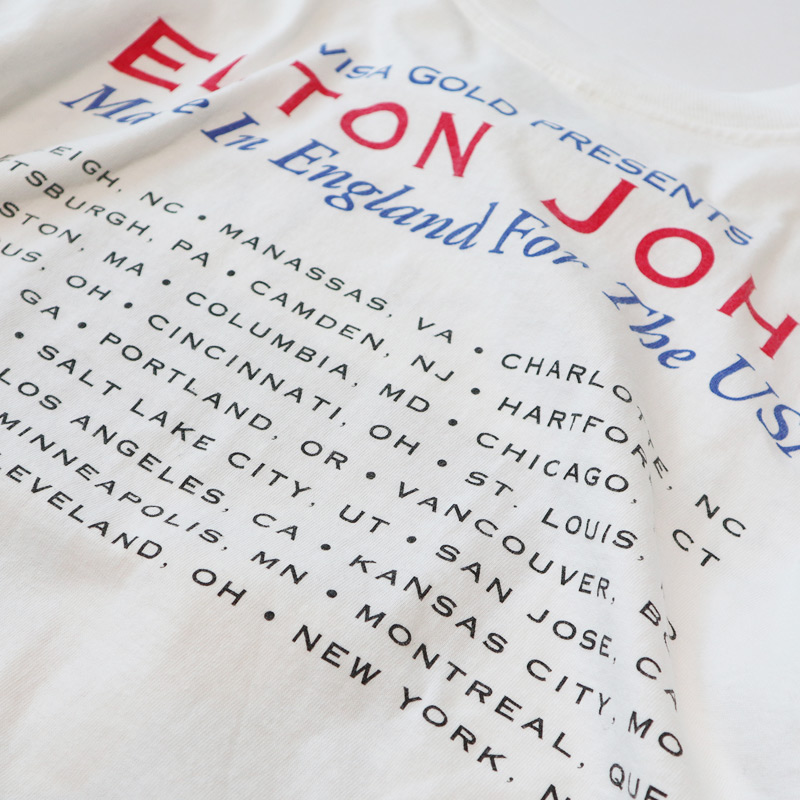 VISA GOLD PRESENTS
ELTON JOH
Made In England For The USA
EIGH, NC • MANASSAS, VA • CHARLOTTE, NC
TTSBURGH, PA • CAMDEN, NJ • HARTFORD, CT
STON, MA • COLUMBIA, MD • CHICAGO,
US, OH • CINCINNATI, OH • ST. LOUIS,
GA • PORTLAND, OR • VANCOUVER, BC
• SALT LAKE CITY, UT • SAN JOSE, CA
LOS ANGELES, CA • KANSAS CITY, MO
MINNEAPOLIS, MN • MONTREAL, QUE
LEVELAND, OH • NEW YORK, N